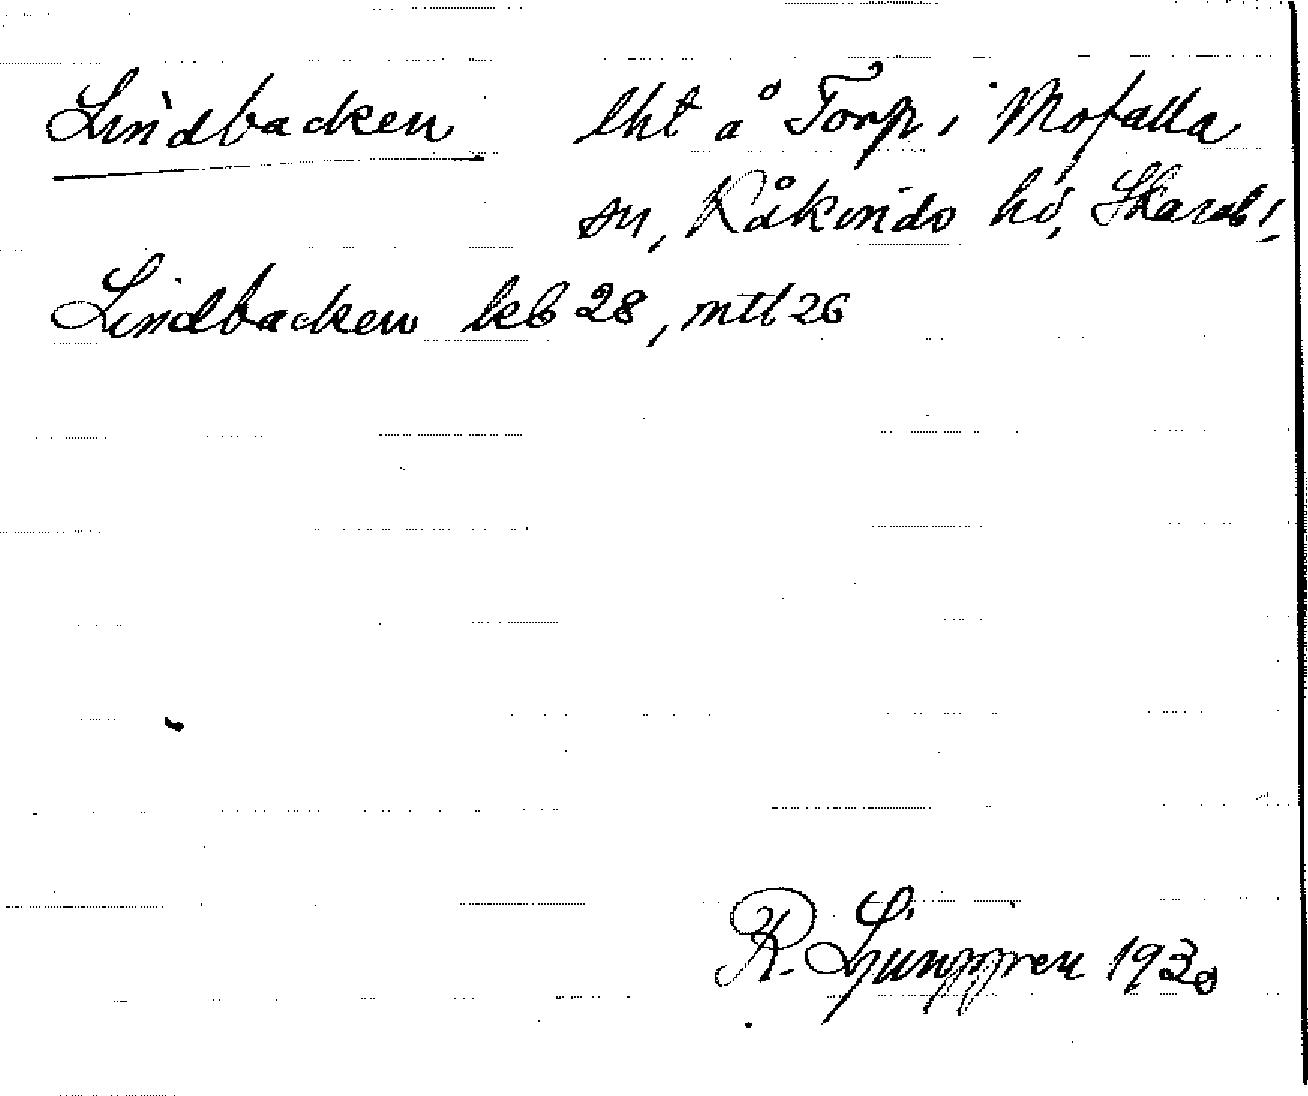 Lindbacken lht å Torp i Mofalla
sn, Kåkinds hd, Skarab. l.
Lindbacken kb 28, mtl 26
R. Ljunggren 1930